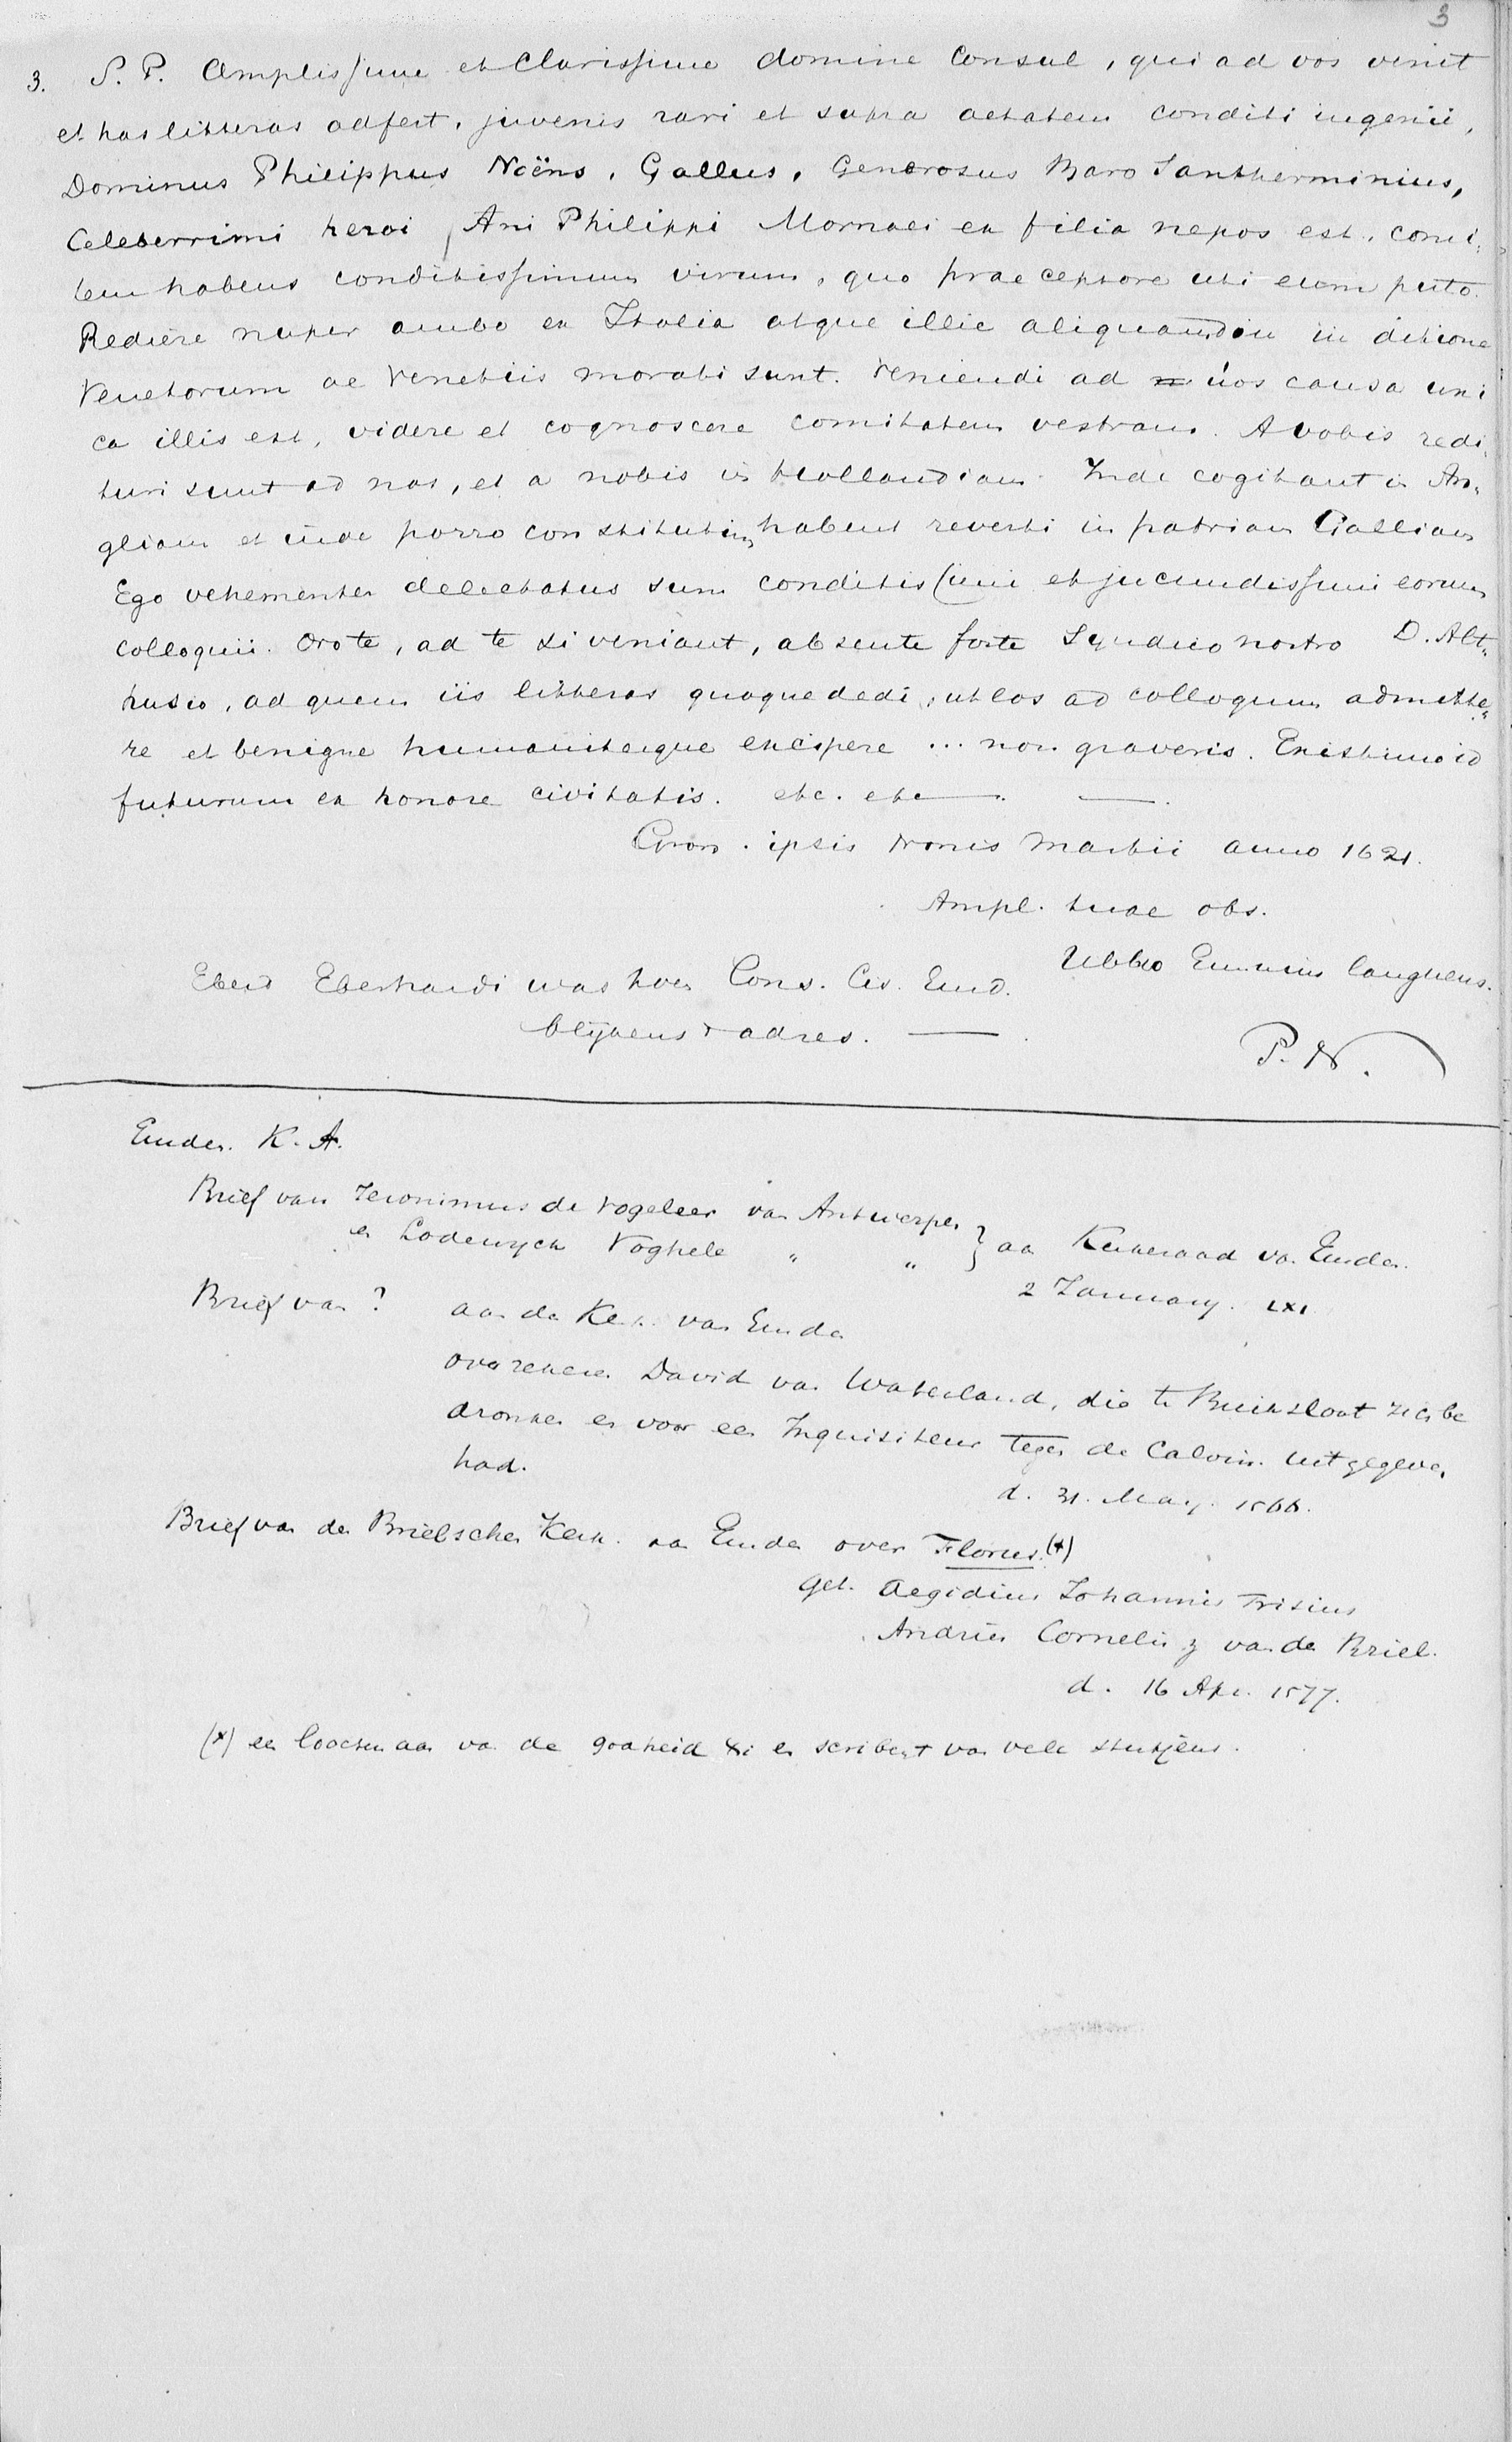 3
3. S. P. Amplissime et Clarissime domine Consul, qui ad vos venit
et has litteras adfert, juvenis rari et supra aetatem conditi ingenii,
Dominus Philippus Noëns, Gallus, Generosus Baro Santherminius,
Celeberrimi heroi Ani Philippi Mornaei ex filia nepos est, comi„
tem habens conditissimum virum, quo praeceptore uti eum puto.
Rediere nuper ambo ex Italia atque illic aliquamdiu in ditione
Venetorum ac Venetiis morati sunt. Veniendi ad vos causa uni
ca illis est, videre et cognoscere comitatem vestram. A vobis redi„
turi sunt ad nos, et a nobis in Hollandiam. Inde cogitant in An„
gliam et inde porro constitutum habent reverti in patriam Galliam
Ego vehementer delectatus sum conditissimi et jucundissimi eorum
colloquii. Oro te, ad te si veniant, absente forte Syndico nostro D. Alt„
husio, ad quem iis litteras quoque dedi, ut eos ad colloquium admitte„
re et benigne humaniterque excipere ... non graveris. Existimo id
futurum ex honore civitatis. etc. etc —. —.
Gron. ipsis Nonis Martii anno 1621.
Ampl. tuae obs.
Ubbo Emmius languens.
Eberd Eberhardi was toen Cons. Civ. Emd.
blijkens 't adres. —.
P. N.
Emden. K. A.
Brief van Jeronimus de Vogeleer van Antwerpen
en Lodewych Voghele „ „ } aan Kerkeraad van Emden.
2 January. LXI
Brief van ? aan de Kerk. van Emden
over zekeren David van Waterland, die te Buiksloot zich be
dronken en voor een Inquisiteur tegen de Calvin. uitgegeven
had.
d. 31. May. 1566.
Brief van de Brielsche Kerk. aan Emden over Florus. (*)
get. Aegidius Johannis Frisius
Andries Cornelisz van den Briel.
d. 16 Apr. 1577.
(*) een loochenaar van de godheid Xi en scribent van vele stukjens.